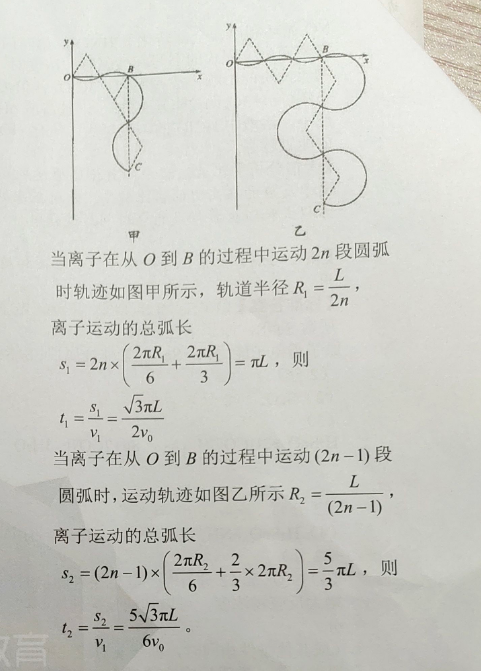 y y
O B x O B x
C C
甲 乙
当离子在从 O 到 B 的过程中运动 2n 段圆弧
时轨迹如图甲所示，轨道半径 R₁ = L/2n，
离子运动的总弧长
s₁ = 2n × (2πR₁/6 + 2πR₁/3) = πL，则
t₁ = s₁/v₁ = √3πL/2v₀
当离子在从 O 到 B 的过程中运动 (2n−1) 段
圆弧时，运动轨迹如图乙所示 R₂ = L/(2n−1)，
离子运动的总弧长
s₂ = (2n−1) × (2πR₂/6 + 2/3 × 2πR₂) = 5/3 πL，则
t₂ = s₂/v₁ = 5√3πL/6v₀。
教育